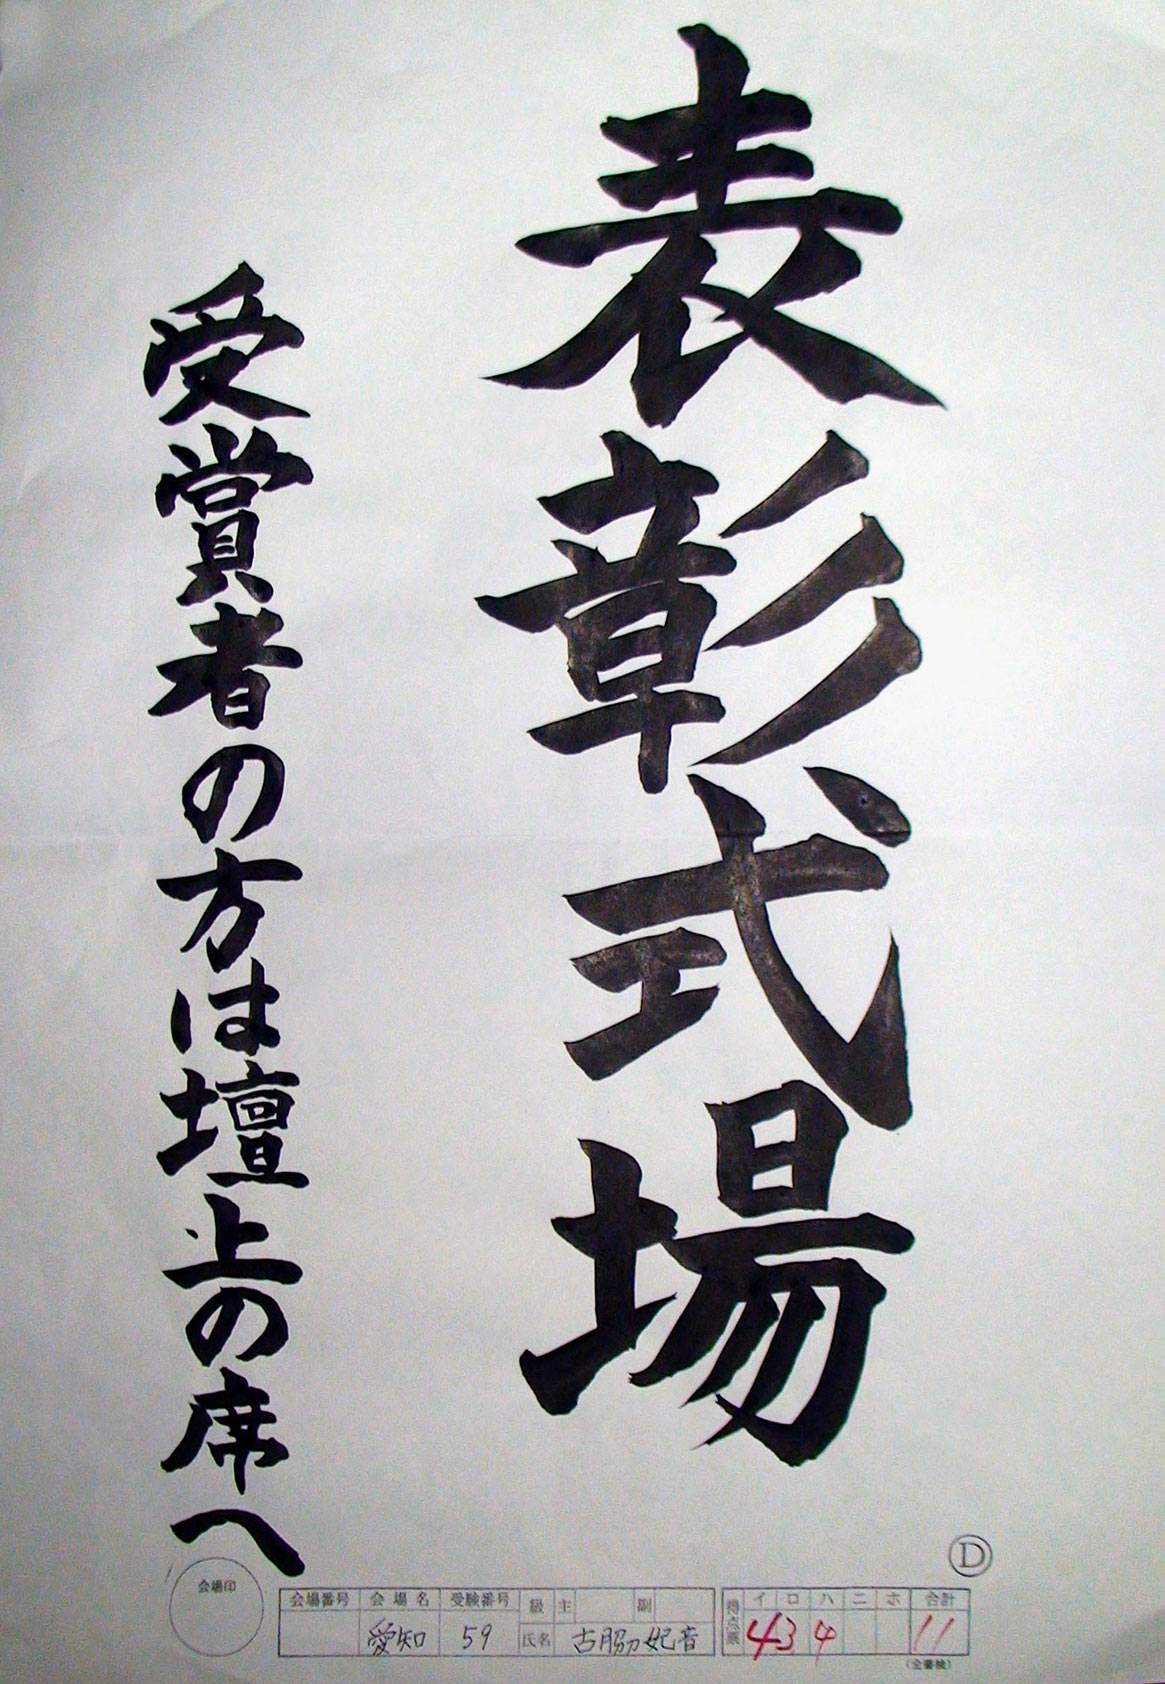 表彰式場
受賞者の方は壇上の席へ
D
会場印
会場番号 会場名 受験番号 級 主 副
愛知 59 氏名 古脇妃音
得点票 イ ロ ハ ニ ホ 合計
4 3 4 11
(全審検)